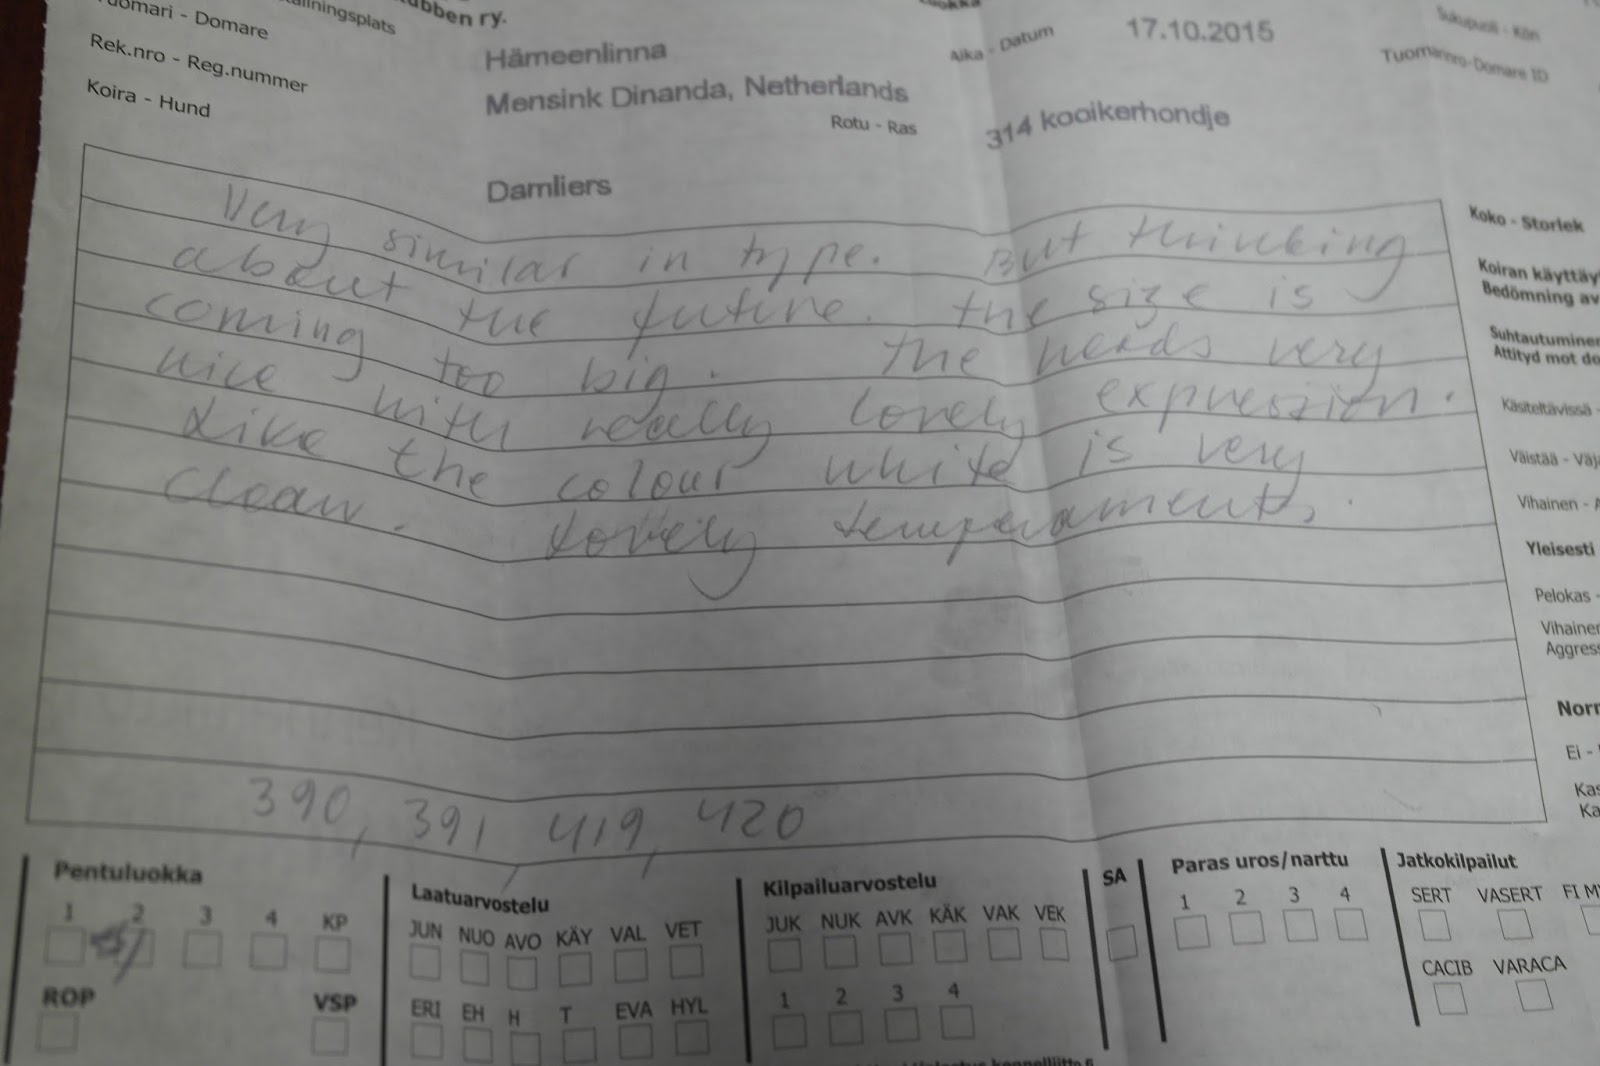 ubben ry.
Tuomari - Domare
Rek.nro - Reg.nummer
Koira - Hund
Hämeenlinna
Aika - Datum
17.10.2015
Sukupuoli - Kön
Mensink Dinanda, Netherlands
Tuomarinro-Domare ID
Rotu - Ras
314 kooikerhondje
Damliers
Very similar in type. But thinking
about the future. the size is
coming too big. The heads very
nice with really lovely expression.
Like the colour white is very
clean. Lovely temperaments.
390, 391, 419, 420
Koko - Storlek
Koiran käyttäy
Bedömning av
Suhtautuminen
Attityd mot do
Käsiteltävissä -
Väistää - Väja
Vihainen - A
Yleisesti
Pelokas -
Vihainen
Aggress
Norr
Ei -
Kas
Ka
Pentuluokka
1 2 3 4 KP
ROP VSP
Laatuarvostelu
JUN NUO AVO KÄY VAL VET
ERI EH H T EVA HYL
Kilpailuarvostelu
JUK NUK AVK KÄK VAK VEK
1 2 3 4
SA
Paras uros/narttu
1 2 3 4
Jatkokilpailut
SERT VASERT FI M
CACIB VARACA